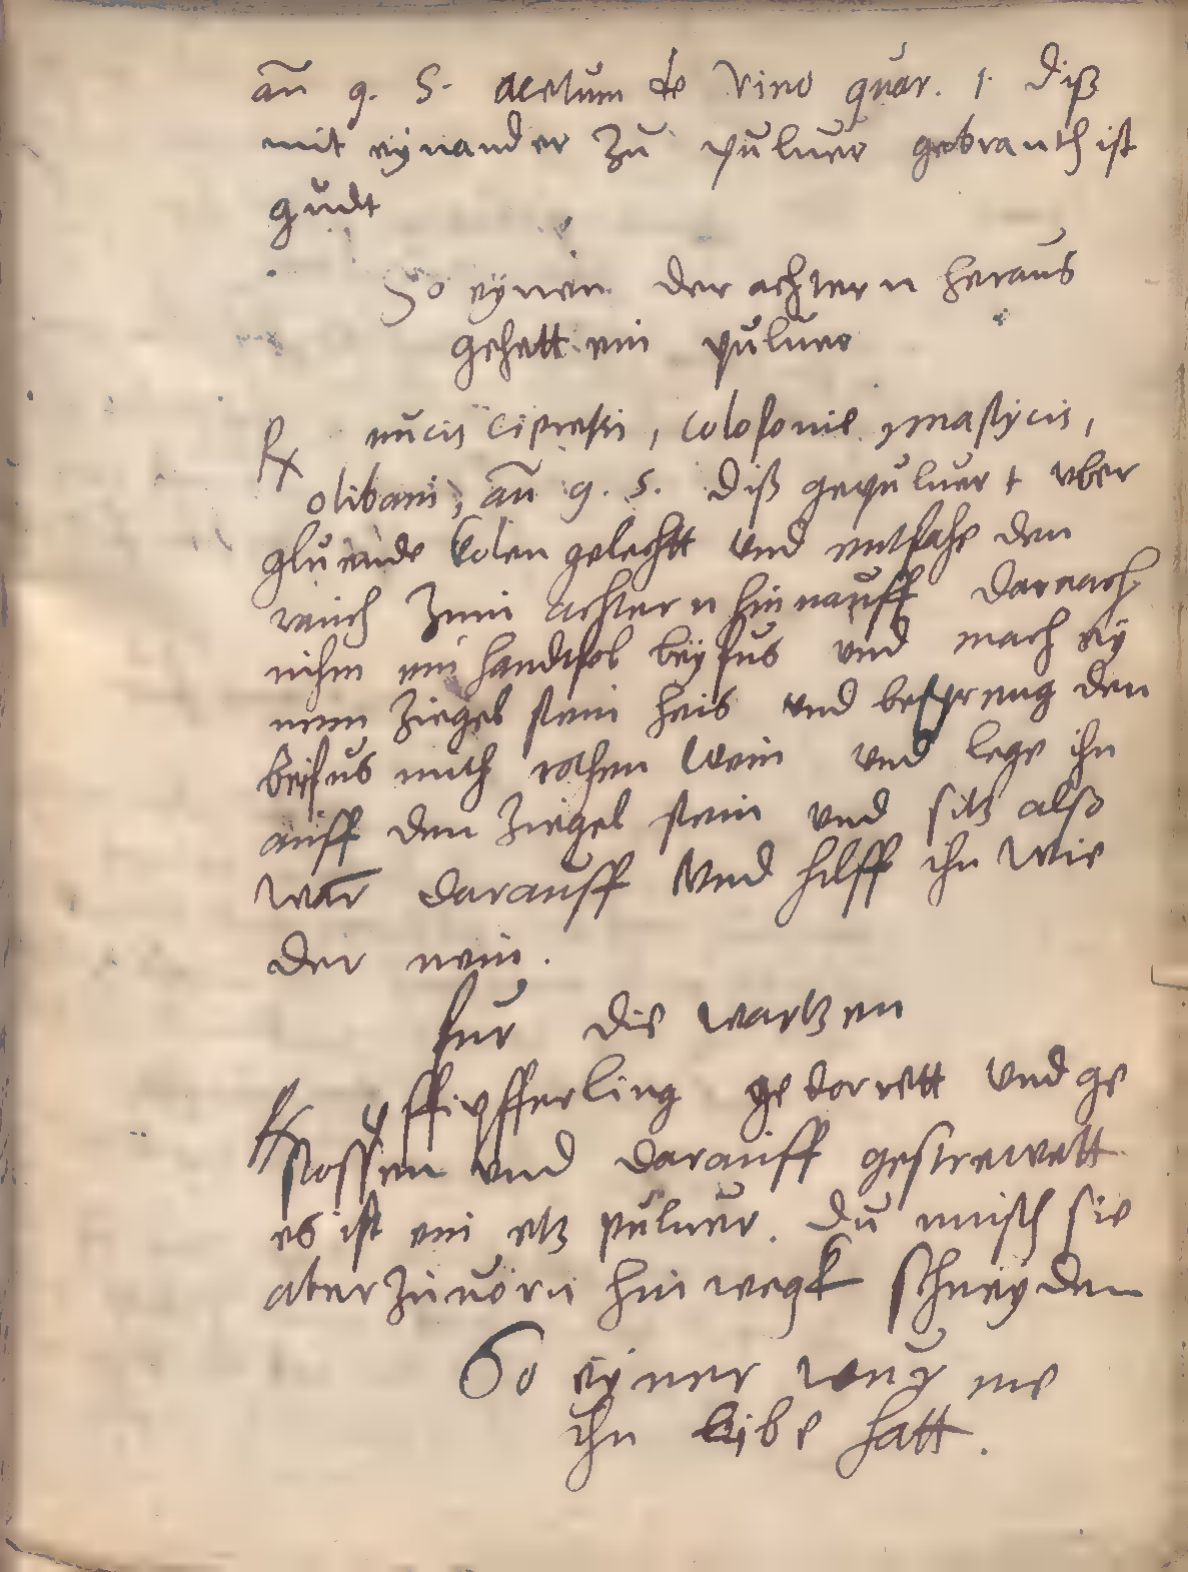 an̄ q. S. acetum de vino quar. 1. diß
mit eynander zu puluer gebranth ist
gudt
So eynen der achtern heraus
gehett ein puluer
℞ nucis cipressi, Colofonie mastycis,
olibani, an̄ q. s. diß gepuluert vber
gluende kolen gelechtt vnd entfahe den
rauch zum achtern hinnauff darnach
nihm ein handtfol beyfus vnd mach ey
nenn ziegel stein heis vnd bespreng den
beifus mith rothen wein vnd lege ihn
auff den ziegel stein vnd sitz also
war̄ darauff vnd hilff ihn wie
der nein.
fur die wartzen
℞ pffipfferling gedorrett vnd ge
stossen vnd darauff gestrewett
es ist ein etz puluer. du must sie
aber zuuorn hinwegk schneyden
So eyner wur me
ihn leibe hatt.